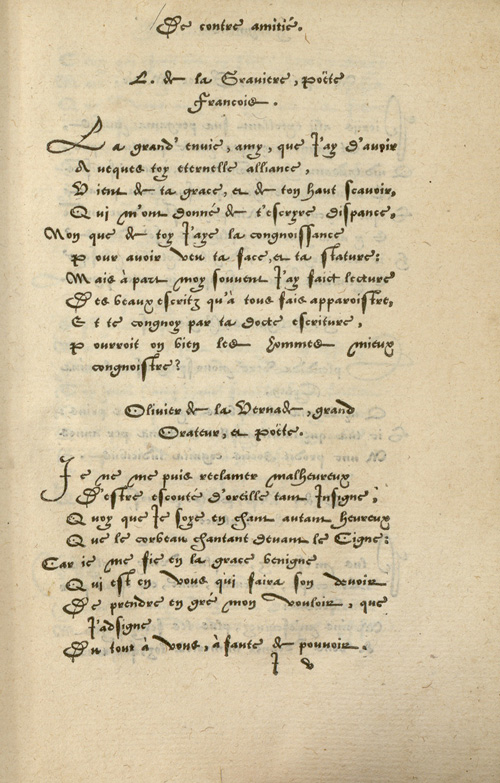 De contre amitié.
L. de la Graviere, poëte
Francois.
La grand' envie, amy, que J'ay d'avoir
Aveques toy eternelle alliance,
Vient de ta grace, et de ton haut scavoir,
Qui m'ont donné de t'escryre dispance,
Non que de toy J'aye la congnoissance
Pour avoir veu ta face, et ta stature:
Mais à part moy souvent J'ay faict lecture
Des beaux escritz qu'à tous fais apparoistre,
Et te congnoy par ta docte escriture,
Pourroit on bien les hommes mieux
congnoistre?
Olivier de la Vernade, grand
Orateur, et poëte.
Je ne me puis reclamer malheureux
D'estre escouté d'oreille tant Insigne,
Quoy que Je soye en chant autant heureux
Que le corbeau chantant devant le Cigne:
Car ie me fie en la grace benigne
Qui est en vous, qui faira son devoir
De prendre en gré mon vouloir, que
J'adsigne
Du tout à vous, à faute de pouvoir.
J v